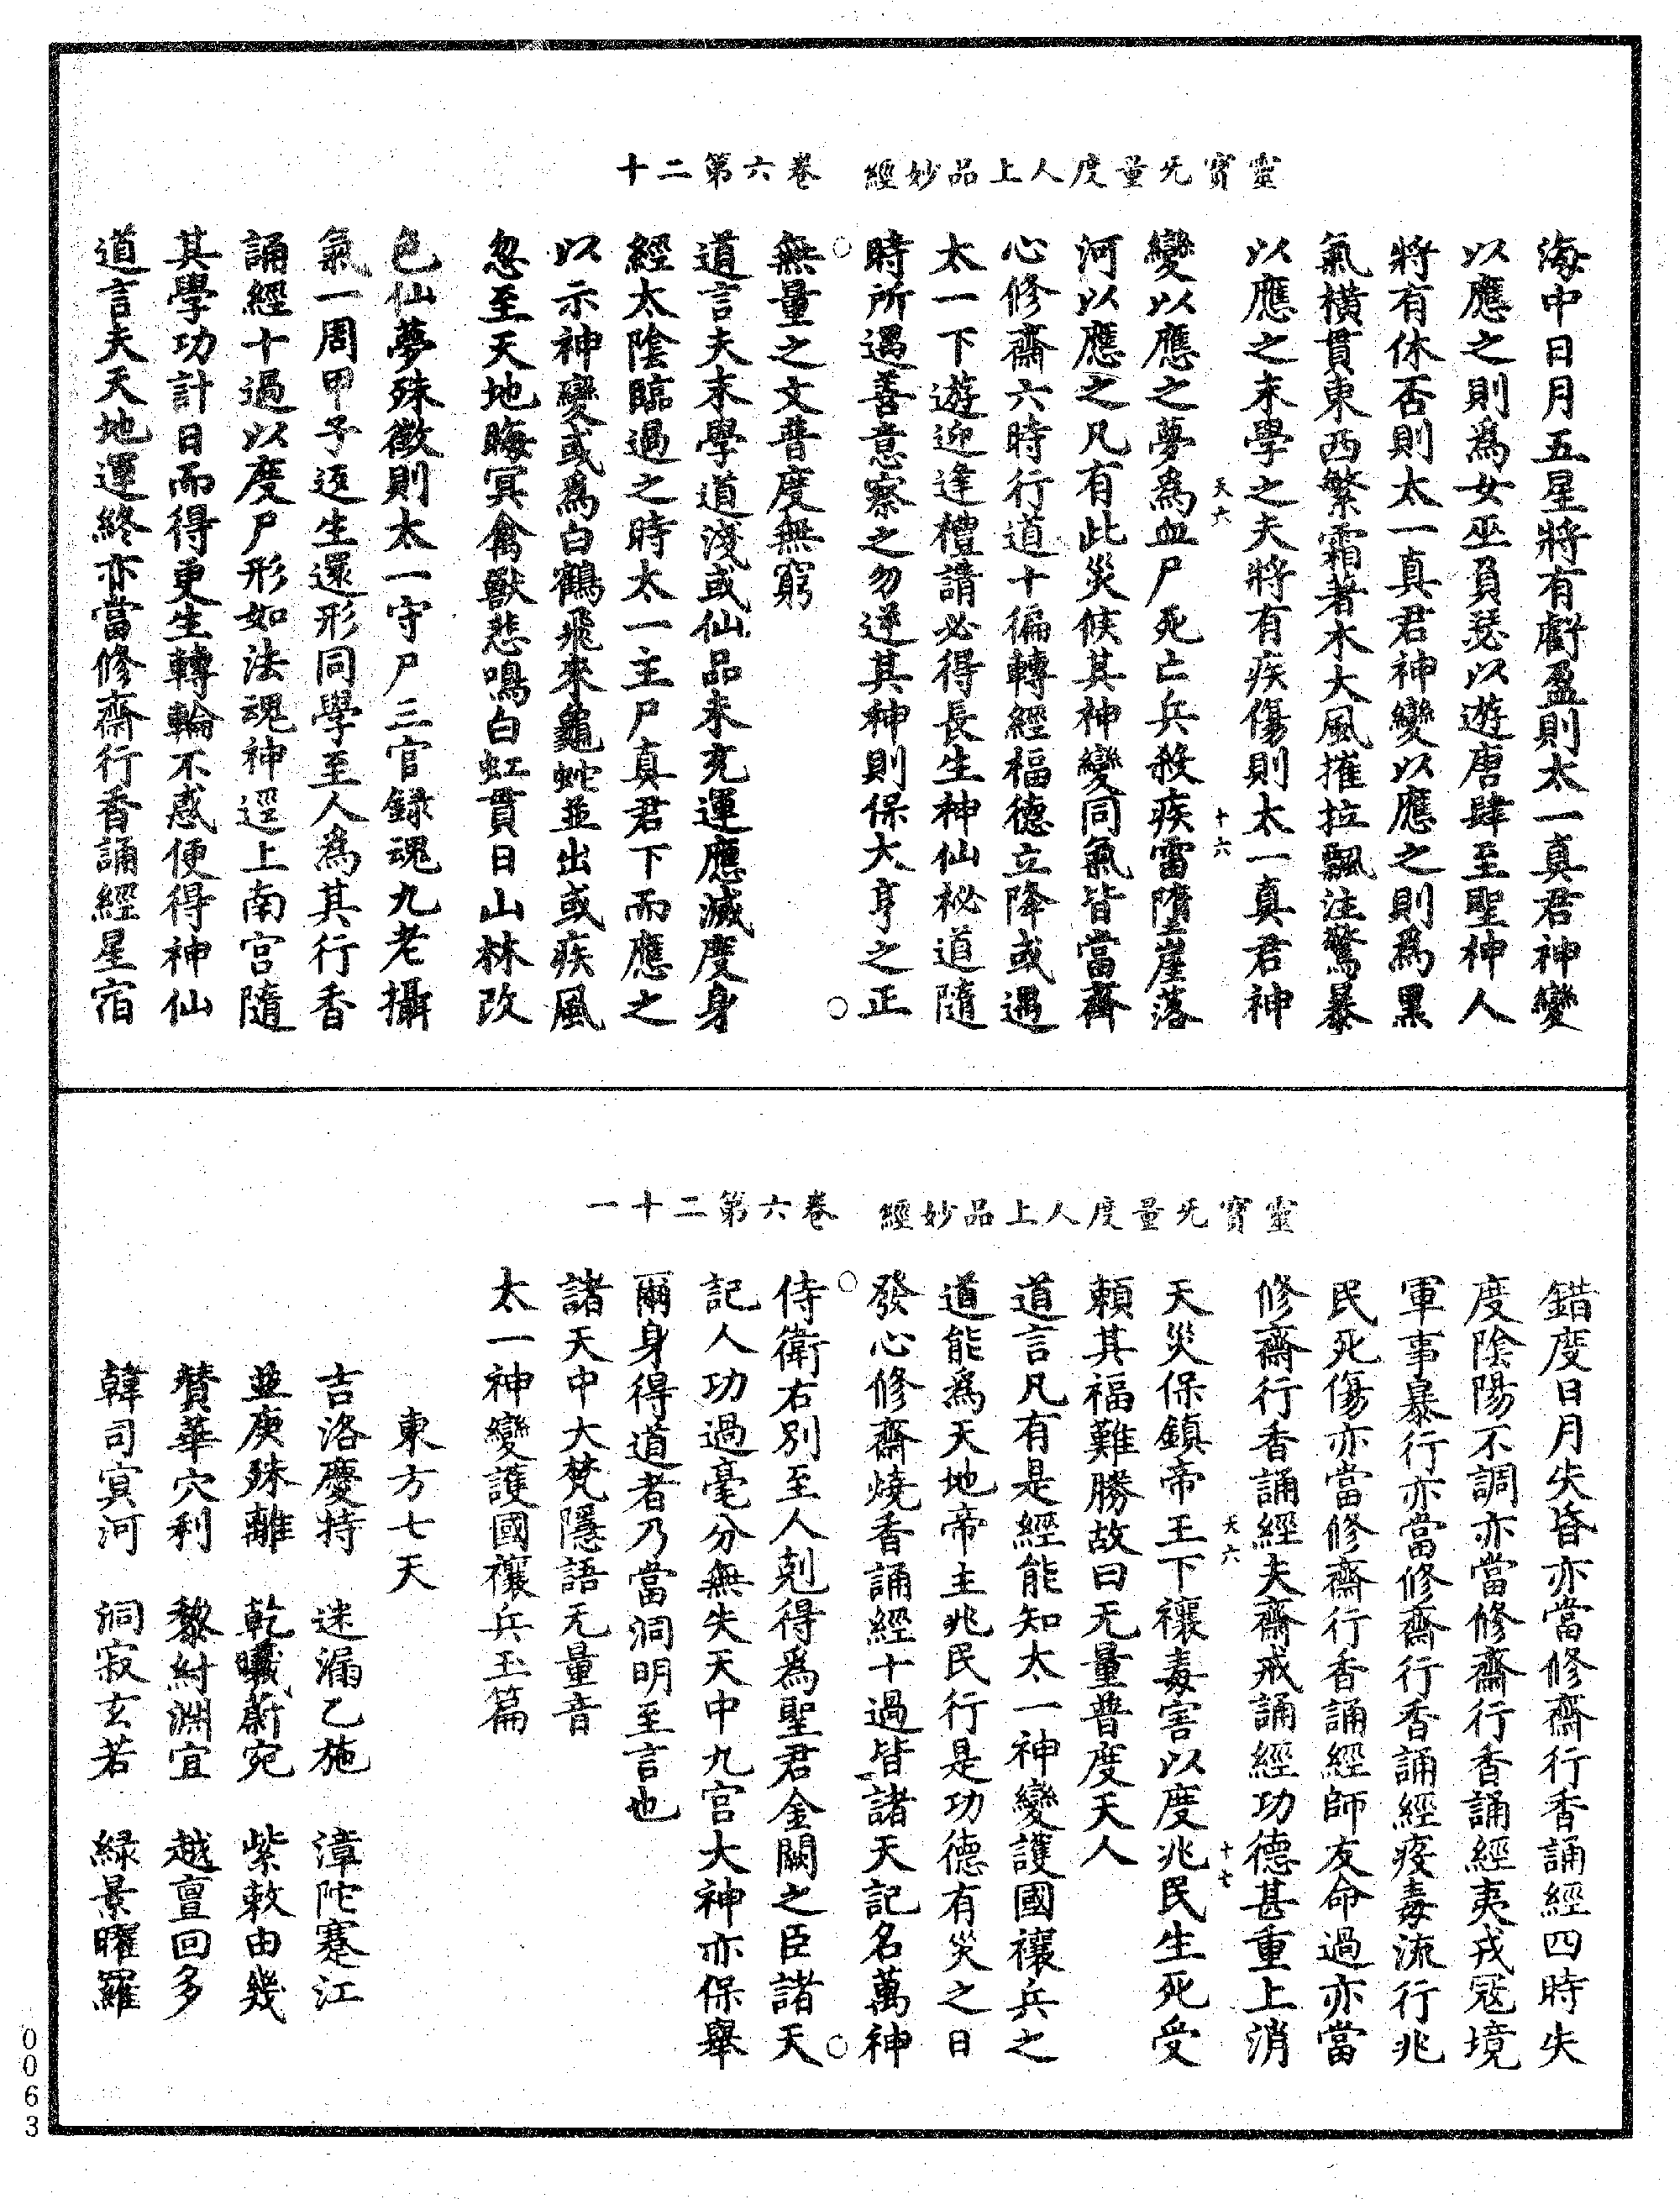 靈寶无量度人上品妙經　卷六第二十
海中日月五星將有虧盈則太一真君神變
以應之則爲女巫負瑟以遊唐肆至聖神人
將有休否則太一真君神變以應之則爲黑
氣橫貫東西繁霜著木大風摧拉飄注驚暴
以應之末學之夫將有疾傷則太一真君神
天六　十六
變以應之夢爲血尸死亡兵殺疾雷墮崖落
河以應之凡有此災候其神變同氣皆當齋
心修齋六時行道十徧轉經福德立降或遇
太一下遊迎逢禮請必得長生神仙秘道隨
時所遇善意察之勿逆其神則保大亨之正
無量之文普度無窮
道言夫末學道淺或仙品未充運應滅度身
經太陰臨過之時太一主尸真君下而應之
以示神變或爲白鶴飛來龜蛇並出或疾風
忽至天地晦冥禽獸悲鳴白虹貫日山林改
色仙夢殊徵則太一守尸三官録魂九老攝
氣一周甲子返生還形同學至人爲其行香
誦經十過以度尸形如法魂神逕上南宫隨
其學功計日而得更生轉輪不惑便得神仙
道言夫天地運終亦當修齋行香誦經星宿
靈寶无量度人上品妙經　卷六第二十一
錯度日月失昏亦當修齋行香誦經四時失
度陰陽不調亦當修齋行香誦經夷戎寇境
軍事暴行亦當修齋行香誦經疫毒流行兆
民死傷亦當修齋行香誦經師友命過亦當
修齋行香誦經夫齋戒誦經功德甚重上消
天六　十七
天災保鎮帝王下禳毒害以度兆民生死受
賴其福難勝故曰无量普度天人
道言凡有是經能知太一神變護國禳兵之
道能爲天地帝主兆民行是功德有災之日
發心修齋燒香誦經十過皆諸天記名萬神
侍衛右別至人剋得爲聖君金闕之臣諸天
記人功過毫分無失天中九宫大神亦保舉
爾身得道者乃當洞明至言也
諸天中大梵隱語无量音
太一神變護國禳兵玉篇
東方七天
吉洛慶持　迷漏乙施　漳陀蹇江
並庚殊離　乾曦蔚宛　紫敕由幾
贊華穴利　黎紂淵宜　越亶回多
韓司寞河　洞寂玄若　緑景曜羅
0063